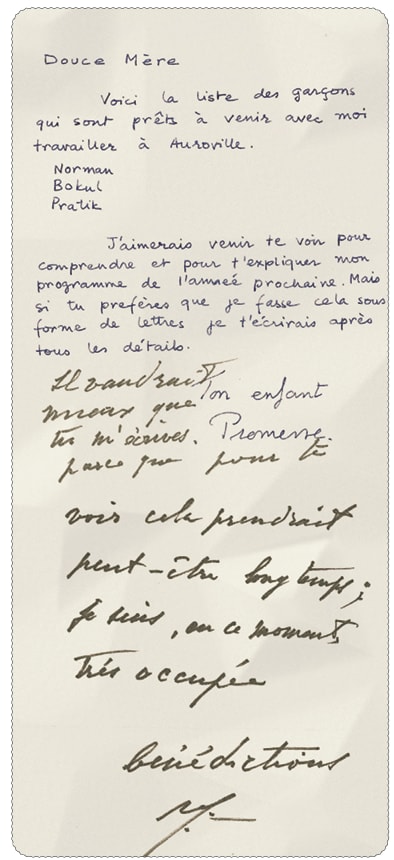 Douce Mère
Voici la liste des garçons
qui sont prêts à venir avec moi
travailler à Auroville.
Norman
Bokul
Pratik
J'aimerais venir te voir pour
comprendre et pour t'expliquer mon
programme de l'anneé prochaine. Mais
si tu preféres que je fasse cela sous
forme de lettres je t'écrirais après
tous les détails.
Ton enfant
Promesse.
Il vaudrait
mieux que
tu m'écrives.
parce que pour te
voir cela prendrait
peut-être longtemps;
je suis, en ce moment,
très occupée
bénédictions